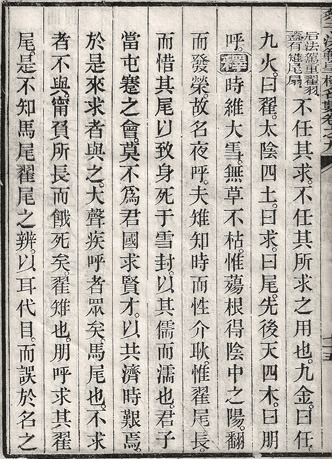 后法駕重翟羽
蓋有雉尾扇 不任其求、不任其所求之用也。九金。曰任
九火。曰翟。太陰四土。曰求。曰尾。先後天四木。曰朋
呼。釋 時維大雪。無草不枯惟蒻根得陰中之陽。翻
而發榮故名夜呼。夫雉知時而性介耿。惟翟尾長
而惜其尾以致身死于雪封。以其儒而濡也。君子
當屯蹇之會。莫不為君國求賢才。以共濟時艱焉
於是來求者與之。大聲疾呼者眾矣。馬尾也。不求
者不與。甯負所長而餓死矣。翟雉也。朋呼求其翟
尾。是不知馬尾翟尾之辨。以耳代目。而誤於名之